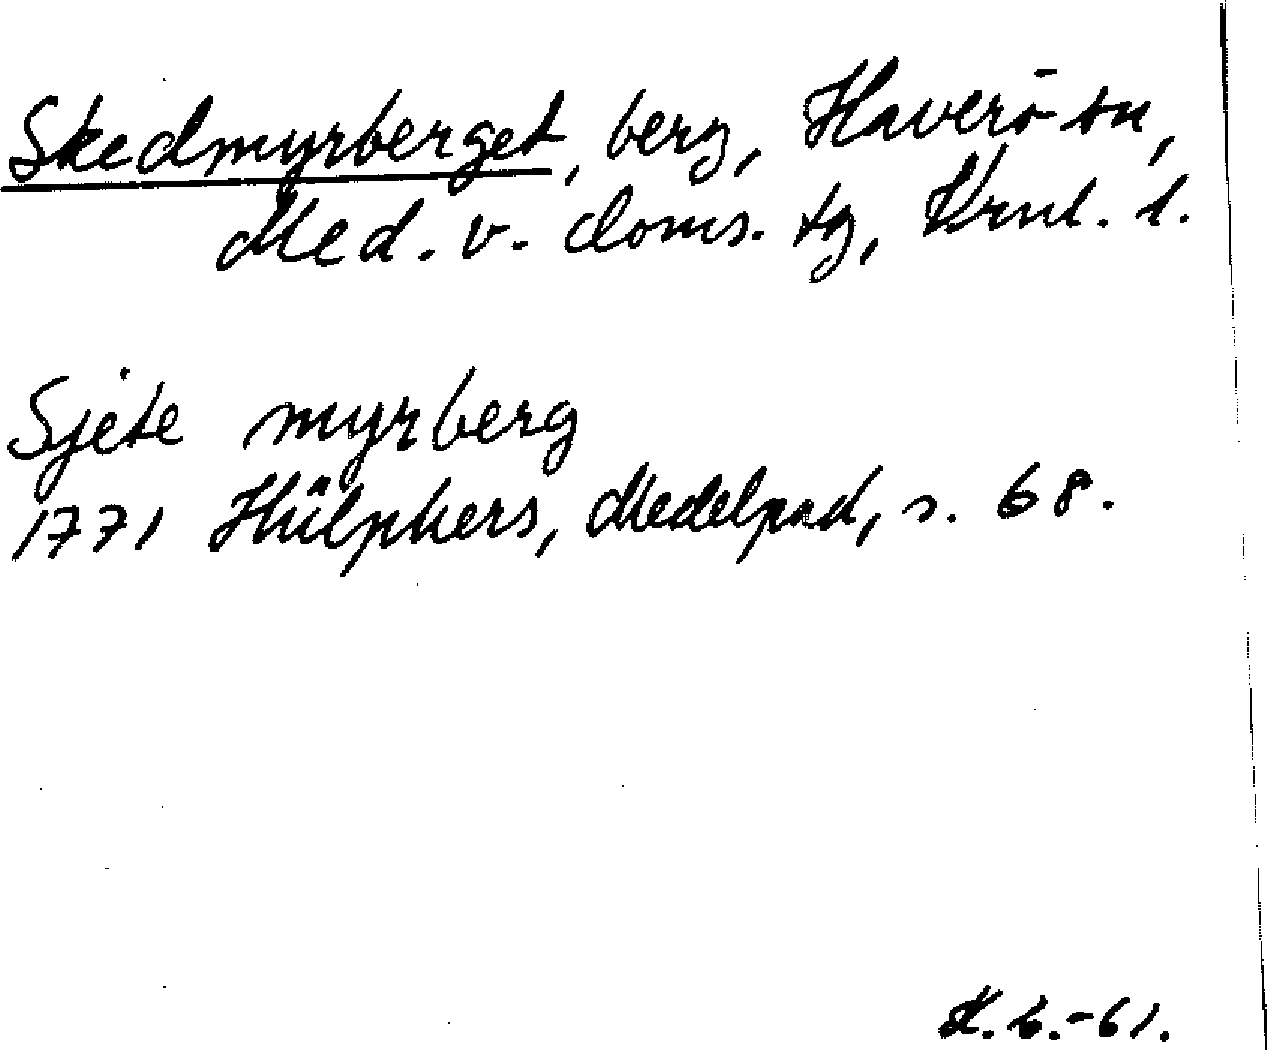 Skedmyrberget, berg, Haverö sn,
Med. v. doms. tg, Vrnl. l.
Sjete myrberg
1771 Hülphers, Medelpad, s. 68.